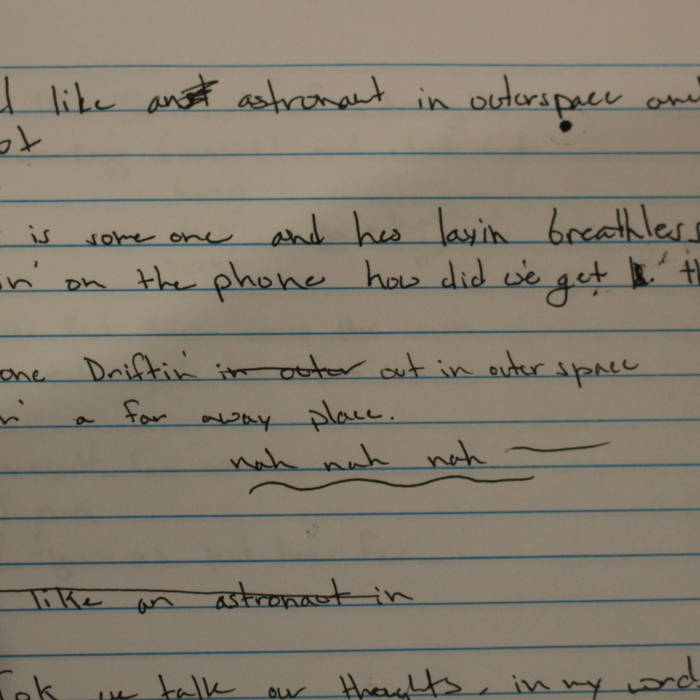 like an astronaut in outerspace and
ot
is some one and hes layin breathless
in' on the phone how did we get
one Driftin' in outer out in outer space
n' a far away place.
nah nah nah
like an astronaut in
we talk our thoughts, in my word